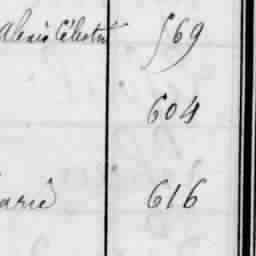 Alexis Célestin 569
604
Marie 616